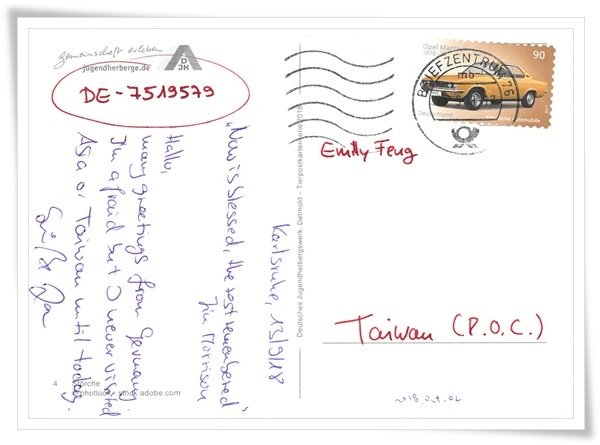 gemeinschaft erleben
jugendherberge.de
DJH
DE-7519579
Karlsruhe, 13/9/18
"Now is blessed, the rest remembered"
Jim Morrison
Hallo,
many greetings from Germany.
I'm afraid but I never visited
Asia or Taiwan until today.
Grüße
4
Störche
photolook - stock.adobe.com
Deutsches Jugendherbergswerk, Detmold – Tierpostkartenserie 2018
Opel Manta
90
Deutschland
Automobile
BRIEFZENTRUM 76
mb
Emily Feng
Taiwan (R.O.C.)